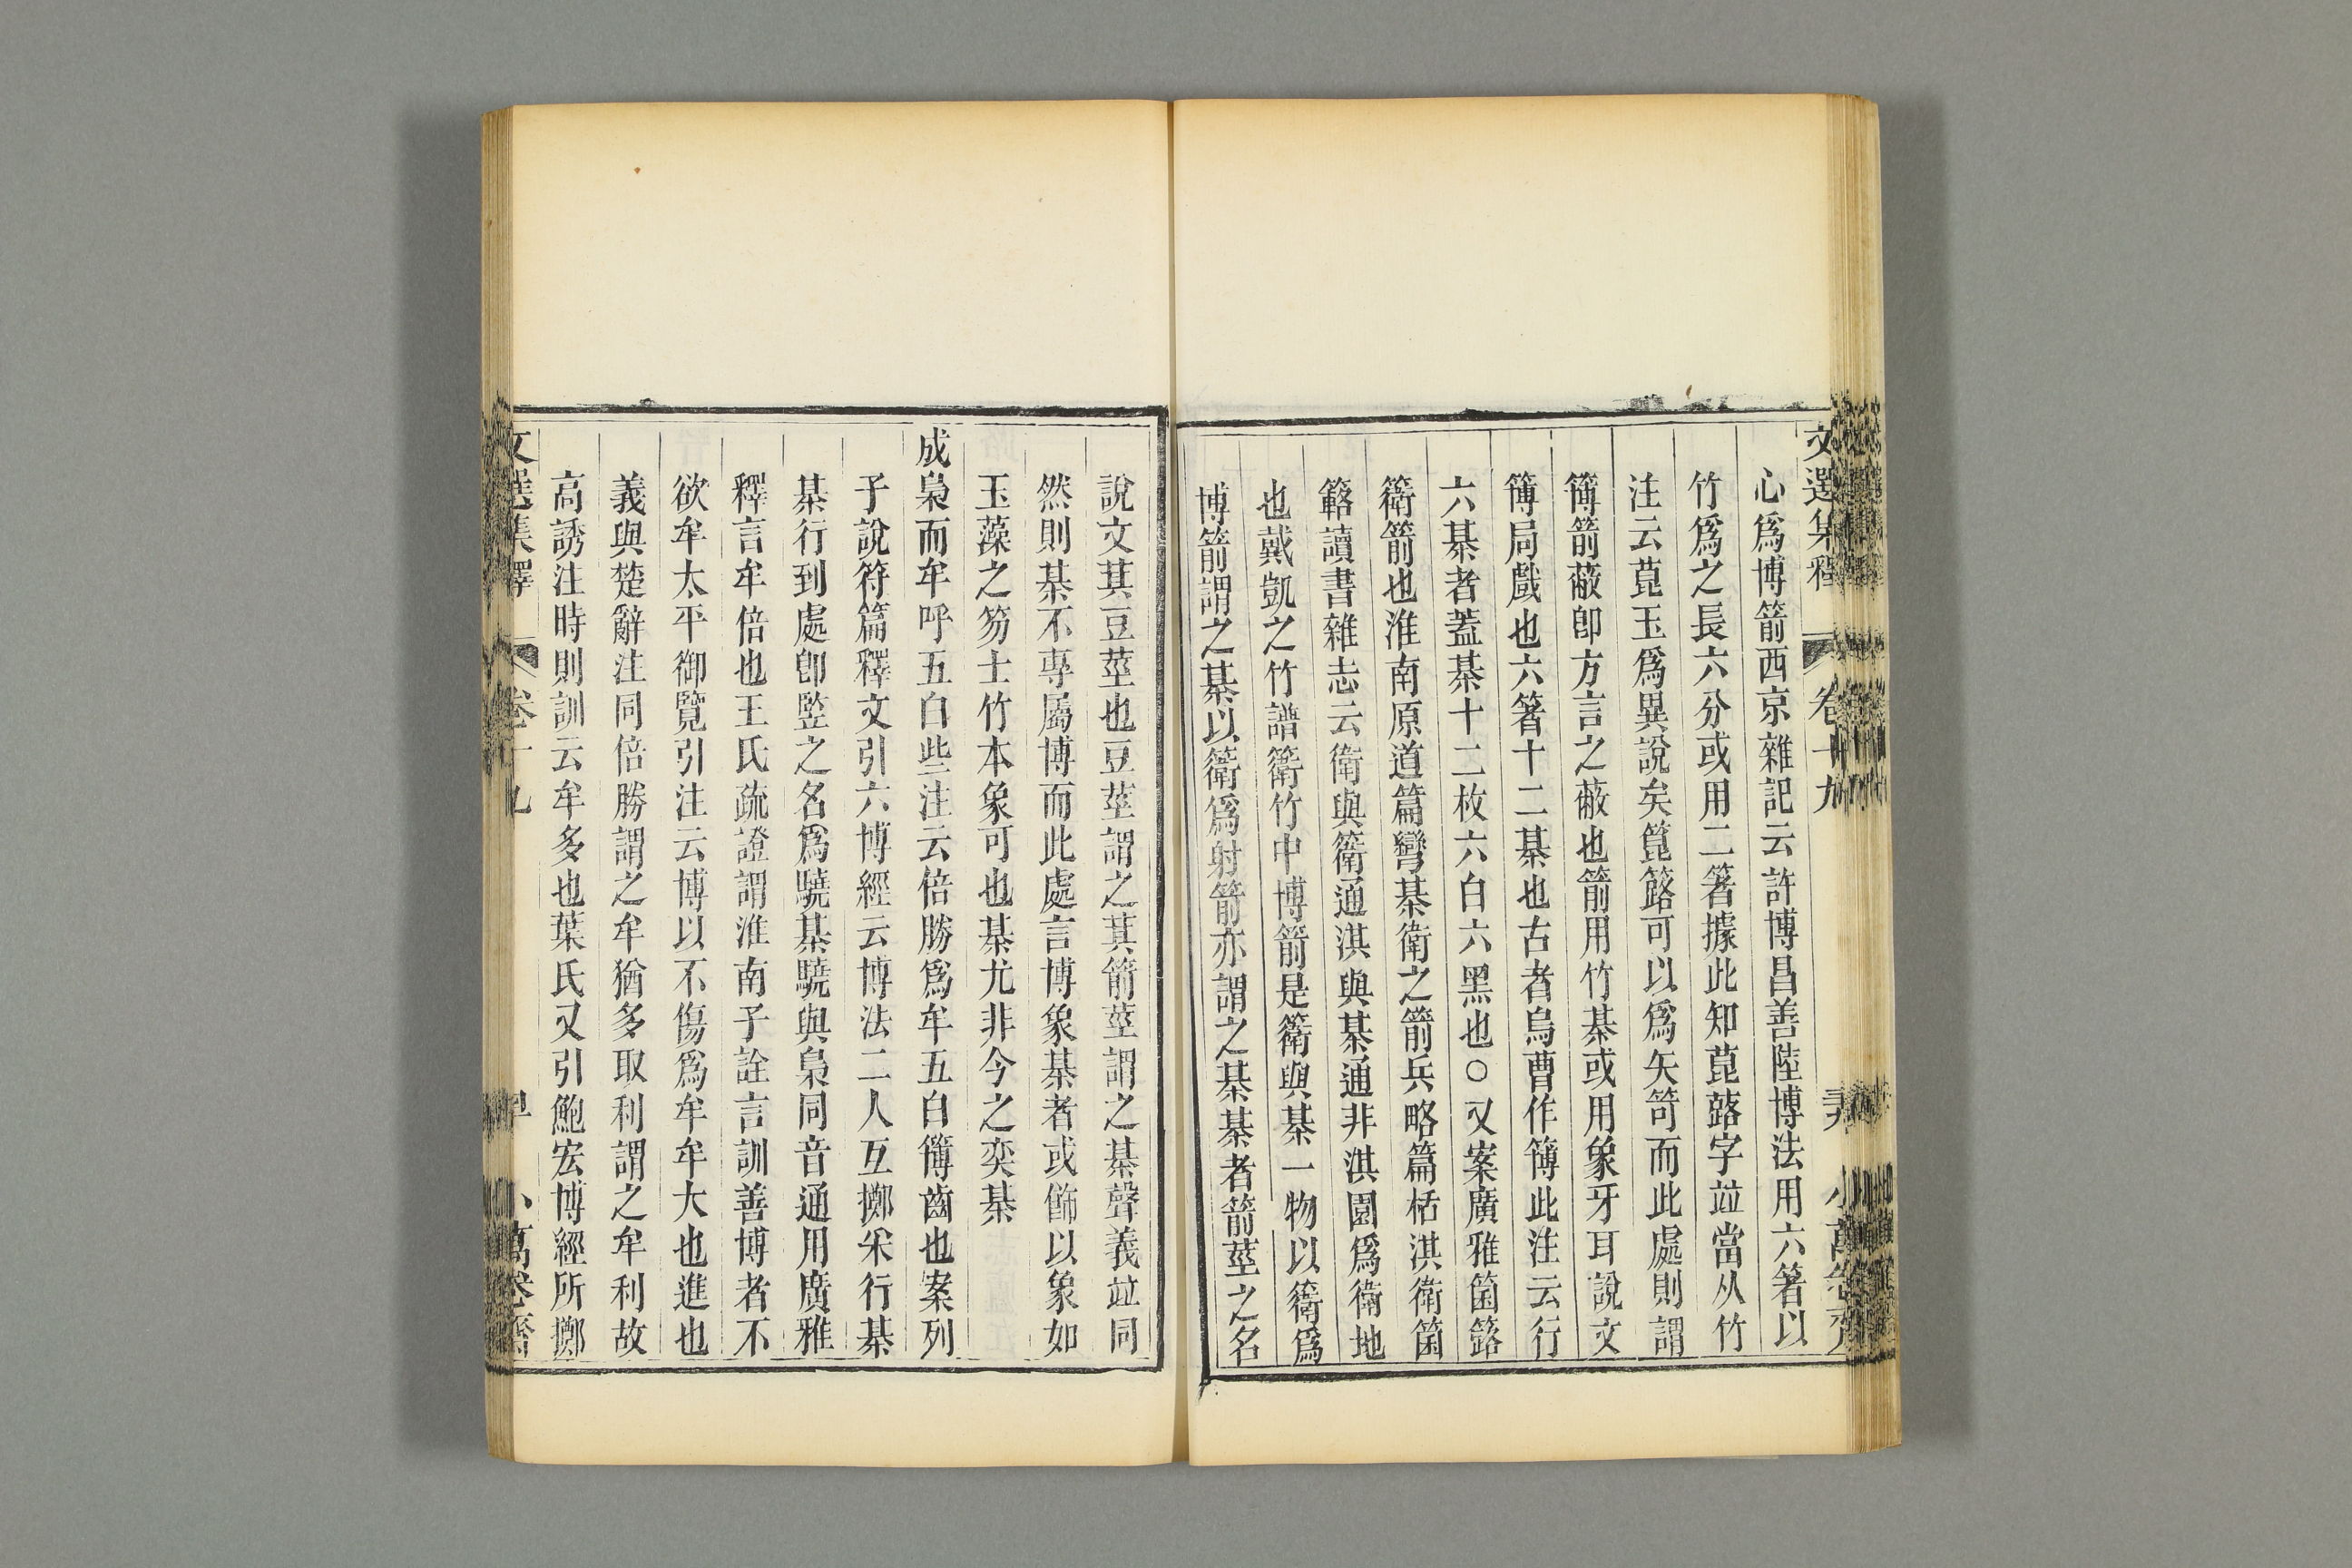 文選集釋 卷十九 小萬卷齋
心爲博箭西京雜記云許博昌善陸博法用六箸以
竹爲之長六分或用二箸據此知菎蕗字竝當从竹
注云菎玉爲異說矣箟簬可以爲矢笴而此處則謂
簙箭蔽卽方言之蔽也箭用竹棊或用象牙耳說文
簙局戲也六箸十二棊也古者烏曹作簙此注云行
六棊者蓋棊十二枚六白六黑也○又案廣雅箘簬
簵箭也淮南原道篇彎棊衞之箭兵略篇栝淇衞箘
簵讀書雜志云衞與簵通淇與棊通非淇園爲衞地
也戴凱之竹譜簵竹中博箭是簵與棊一物以簵爲
博箭謂之棊以簵爲射箭亦謂之棊棊者箭莖之名
說文萁豆莖也豆莖謂之萁箭莖謂之棊聲義竝同
然則棊不專屬博而此處言博象棊者或飾以象如
玉藻之笏士竹本象可也棊尤非今之奕棊
成梟而牟呼五白些注云倍勝爲牟五白簙齒也案列
子說符篇釋文引六博經云博法二人互擲采行棊
棊行到處卽竪之名爲驍棊驍與梟同音通用廣雅
釋言牟倍也王氏疏證謂淮南子詮言訓善博者不
欲牟太平御覽引注云博以不傷爲牟牟大也進也
義與楚辭注同倍勝謂之牟猶多取利謂之牟利故
高誘注時則訓云牟多也葉氏又引鮑宏博經所擲
文選集釋 卷十九 小萬卷齋